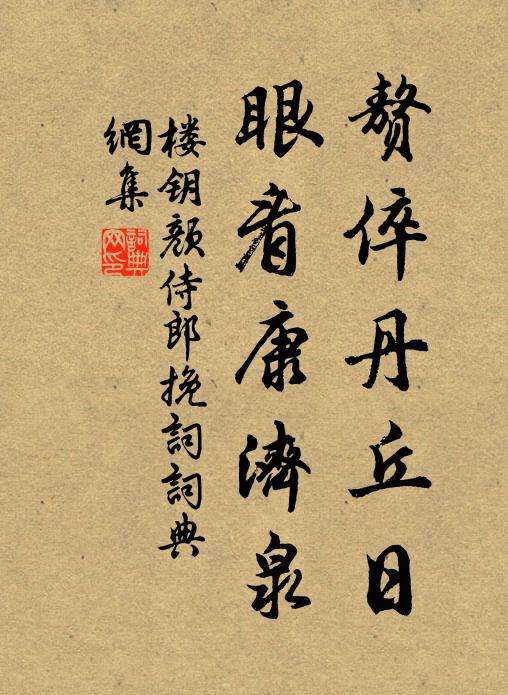 贅倅丹丘日
眼看康濟泉
楼钥颜侍郎挽詞詞典
網集
詞典网印